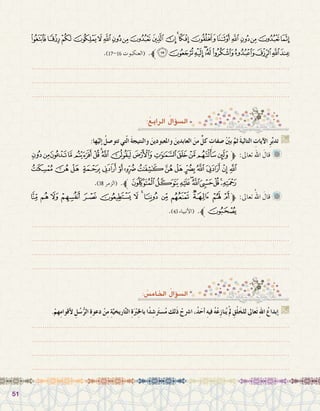 إِنَّمَا تَعْبُدُونَ مِن دُونِ اللَّهِ أَوْثَانًا وَتَخْلُقُونَ إِفْكًا إِنَّ الَّذِينَ تَعْبُدُونَ مِن دُونِ اللَّهِ لَا يَمْلِكُونَ لَكُمْ رِزْقًا فَابْتَغُوا
عِندَ اللَّهِ الرِّزْقَ وَاعْبُدُوهُ وَاشْكُرُوا لَهُ إِلَيْهِ تُرْجَعُونَ ﴾. (العنكبوت 16-17).
• السؤال الرابع:
تدبّر الآيات التالية ثمّ بيّن صفات كلّ من العابدين والمعبودين والنتيجة الّتي توصل إليها:
قال الله تعالى: ﴿ وَلَئِن سَأَلْتَهُم مَّنْ خَلَقَ السَّمَاوَاتِ وَالْأَرْضَ لَيَقُولُنَّ اللَّهُ قُلْ أَفَرَأَيْتُم مَّا تَدْعُونَ مِن دُونِ
اللَّهِ إِنْ أَرَادَنِيَ اللَّهُ بِضُرٍّ هَلْ هُنَّ كَاشِفَاتُ ضُرِّهِ أَوْ أَرَادَنِي بِرَحْمَةٍ هَلْ هُنَّ مُمْسِكَاتُ
رَحْمَتِهِ قُلْ حَسْبِيَ اللَّهُ عَلَيْهِ يَتَوَكَّلُ الْمُتَوَكِّلُونَ ﴾. (الزمر 38).
قال الله تعالى: ﴿ أَمْ لَهُمْ آلِهَةٌ تَمْنَعُهُم مِّن دُونِنَا لَا يَسْتَطِيعُونَ نَصْرَ أَنفُسِهِمْ وَلَا هُم مِّنَّا
يُصْحَبُونَ ﴾. (الأنبياء 43).
• السؤال الخامس:
إبداعُ الله تعالى للخلق لم يُنازعه فيه أحد، اشرح ذلك مسترشدًا بأخبارٍ تاريخيّة من دعوة الرّسل لأقوامهم.
51